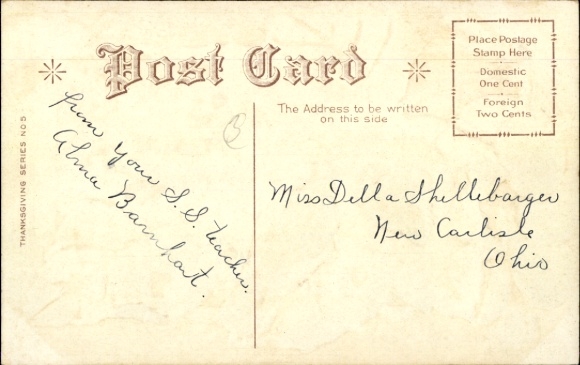 Post Card
Place Postage
Stamp Here
Domestic
One Cent
Foreign
Two Cents
The Address to be written
on this side
THANKSGIVING SERIES NO 5
from your S. S. teacher.
Alma Barnhart.
B
Miss Della Shellebarger
New Carlisle
Ohio